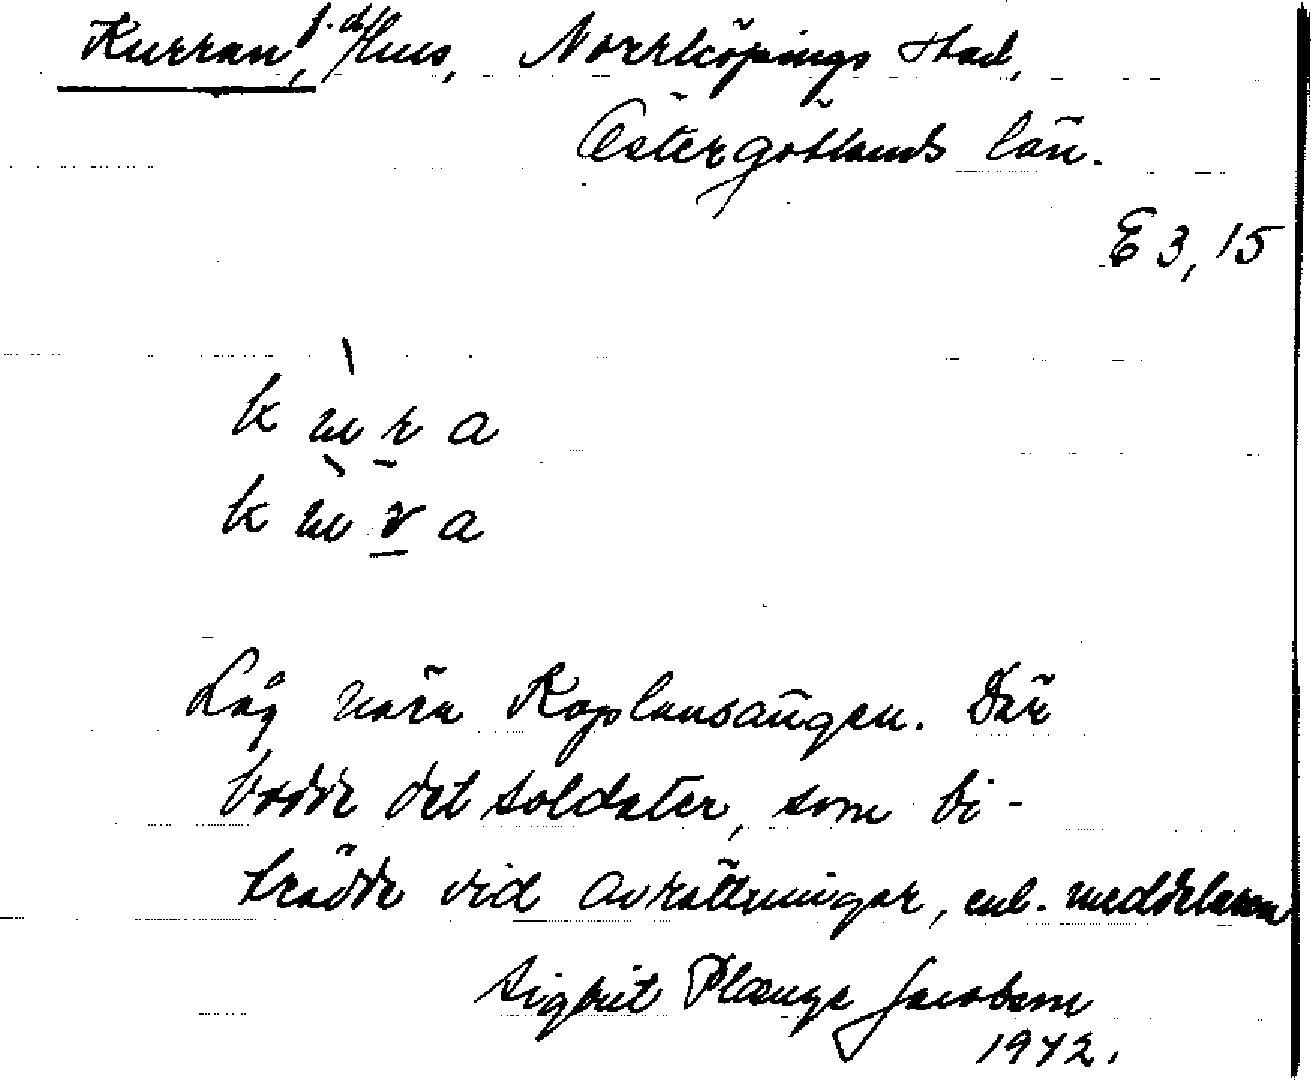 Kurran, f.d. Hus, Norrköpings stad,
Östergötlands län.
E 3, 15
k u r a
k u r a
Låg nära Kaplansängen. Där
bodde det soldater, som bi-
trädde vid avrättningar, enl. meddelaren
Sigrid Plænge Jacobson
1972.